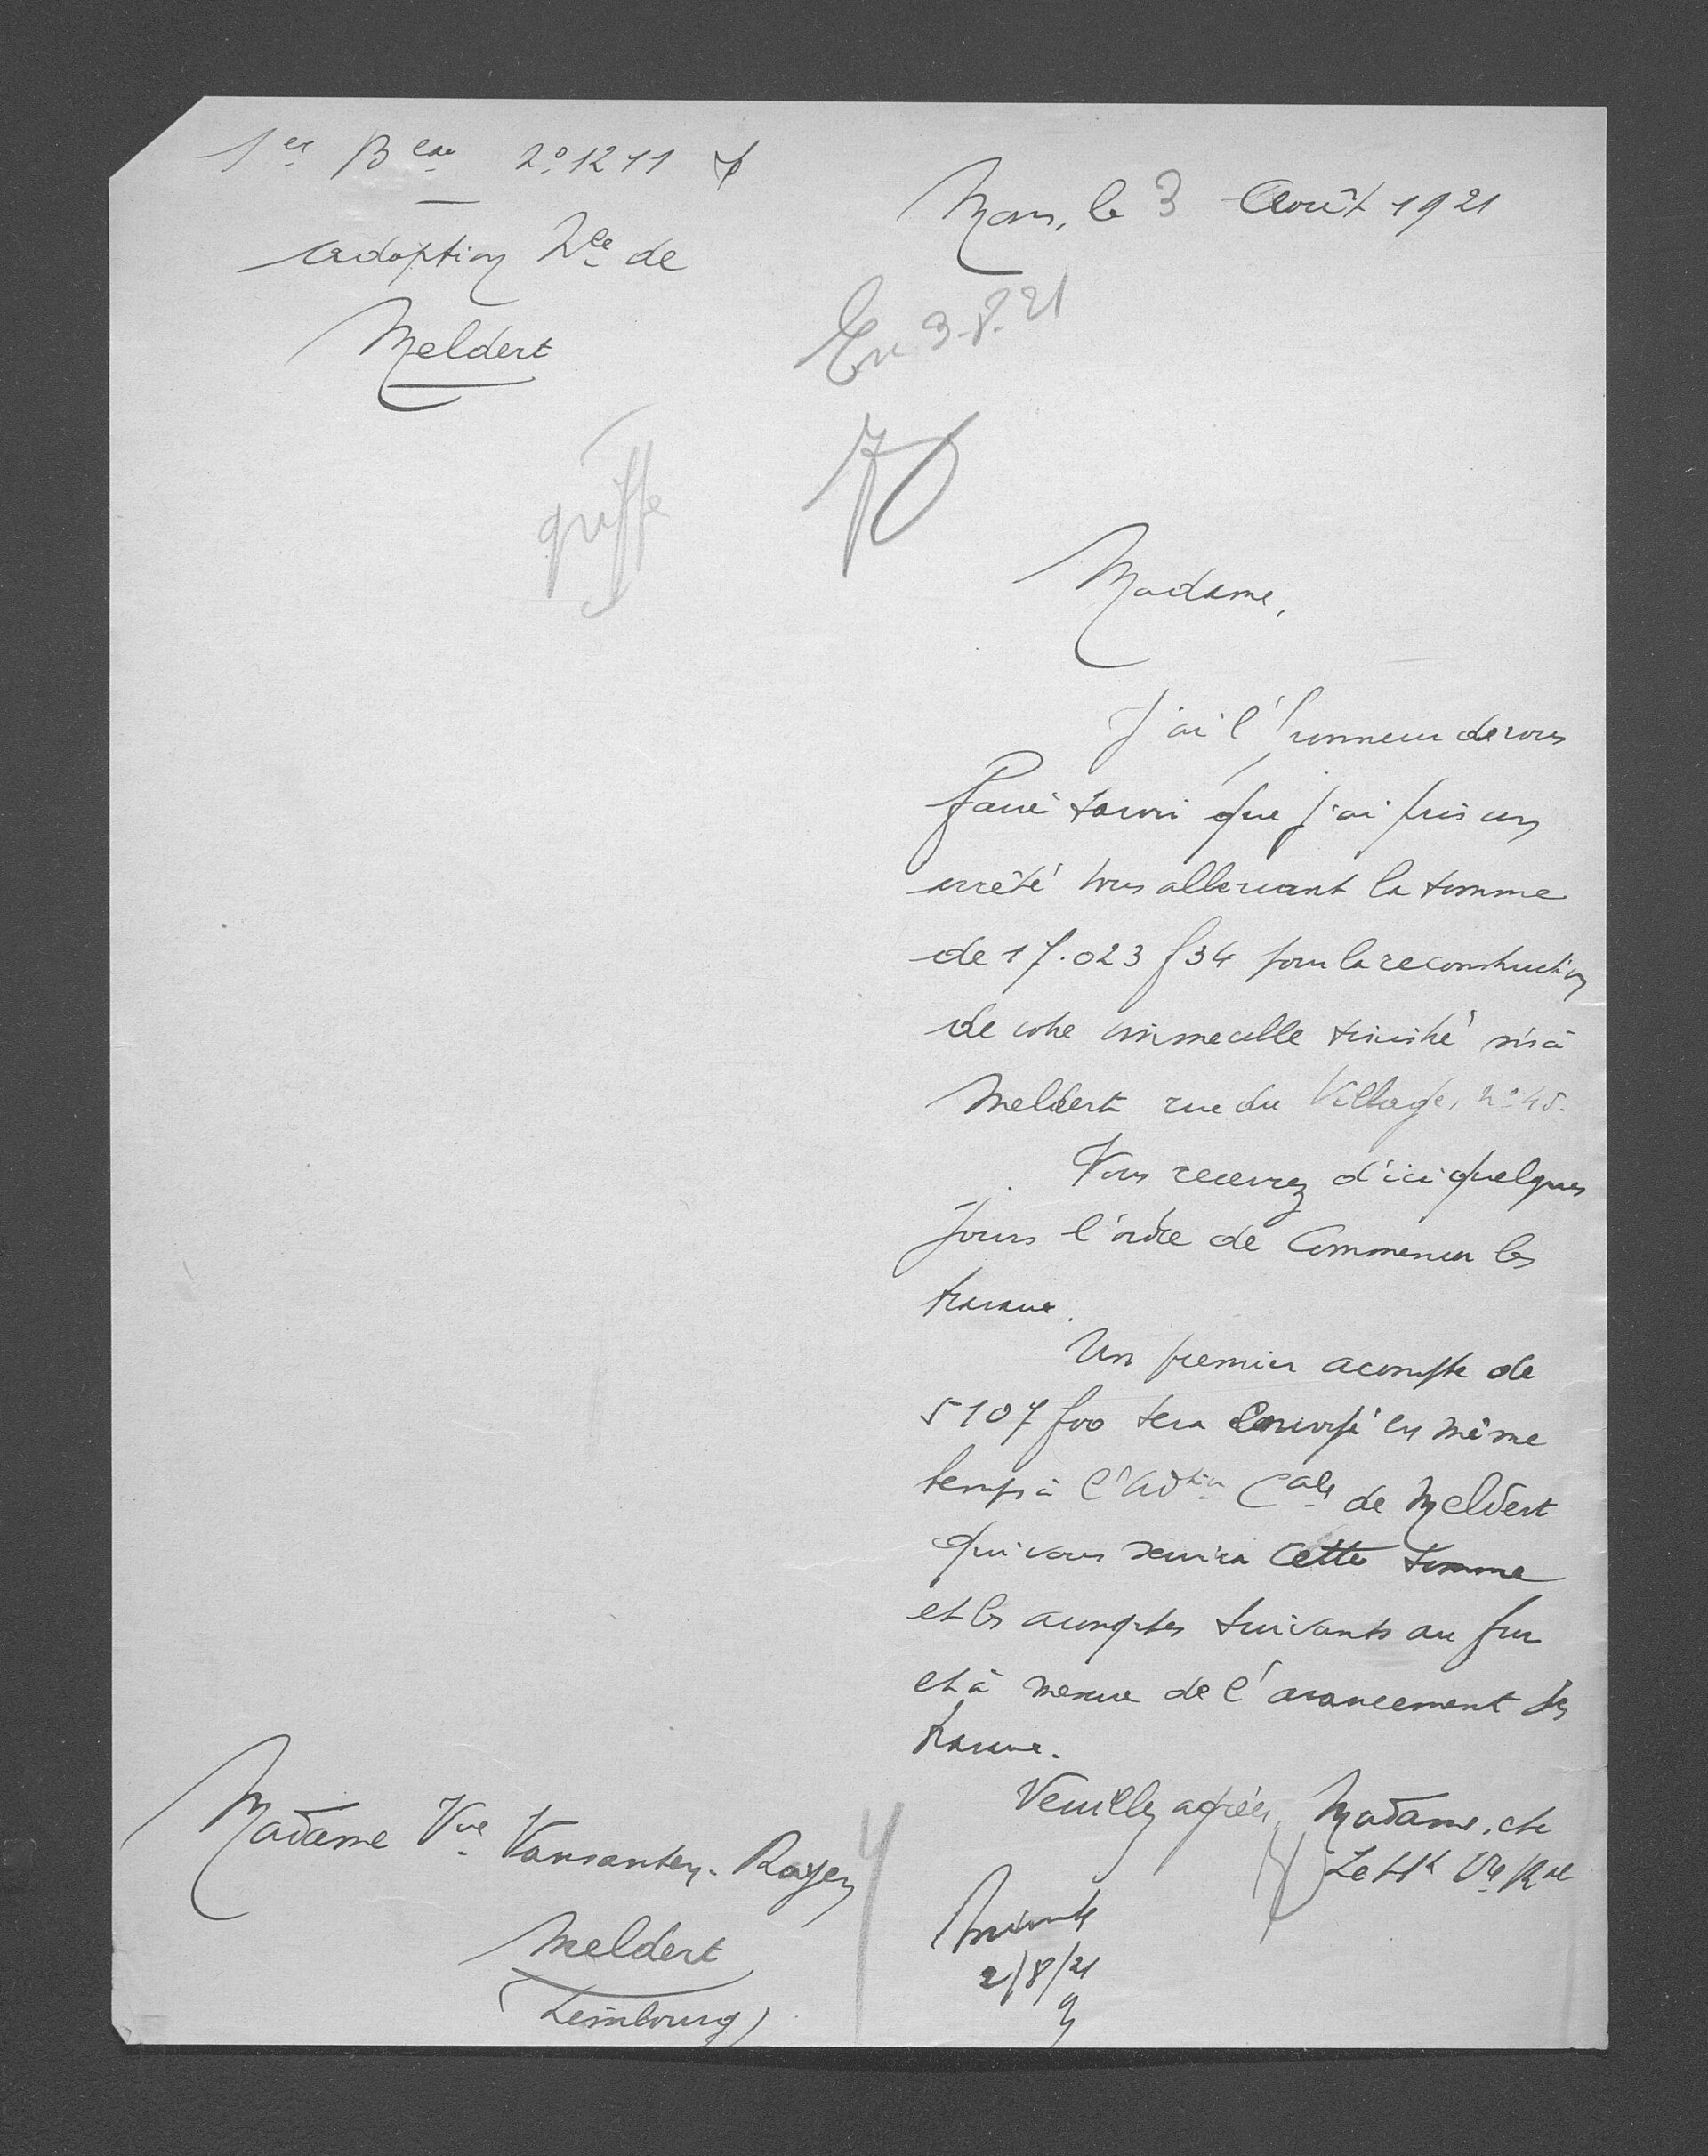 1er Beau No 1211
Mons, le 3 Août 1921
adoption Nle de
Meldert
Ex 3-8-21
griffe
Madame,
J'ai l'honneur de vous
faire savoir que j'ai pris un
arrêté vous allouant la somme
de 17.023 f 34 pour la reconstruction
de votre immeuble sinistré sis à
Meldert rue du Village, no 45.
Vous recevrez d'ici quelques
jours l'ordre de commencer les
travaux.
Un premier acompte de
5107 f00 sera envoyé en même
temps à l'Adtion Cale de Meldert
qui vous remettra cette somme
et les acomptes suivants au fur
et à mesure de l'avancement des
travaux.
Veuillez agréer, Madame, etc
Le Ht Cre Ral
Madame Vve Vansanten-Rayen
Meldert
(Limbourg)
Minute
2/8/21